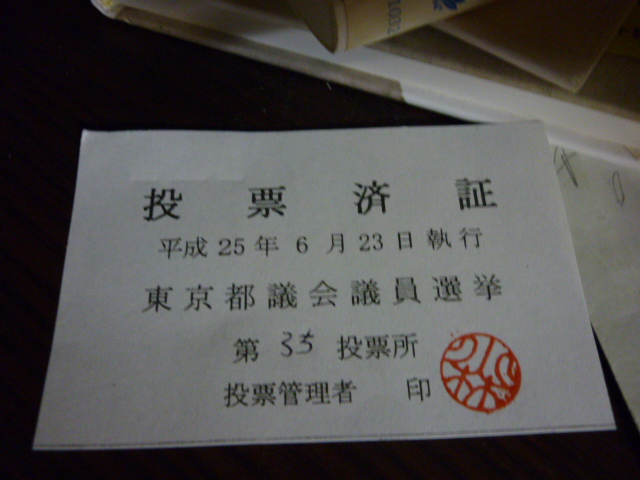 投票済証
平成25年6月23日執行
東京都議会議員選挙
第 35 投票所
投票管理者 印